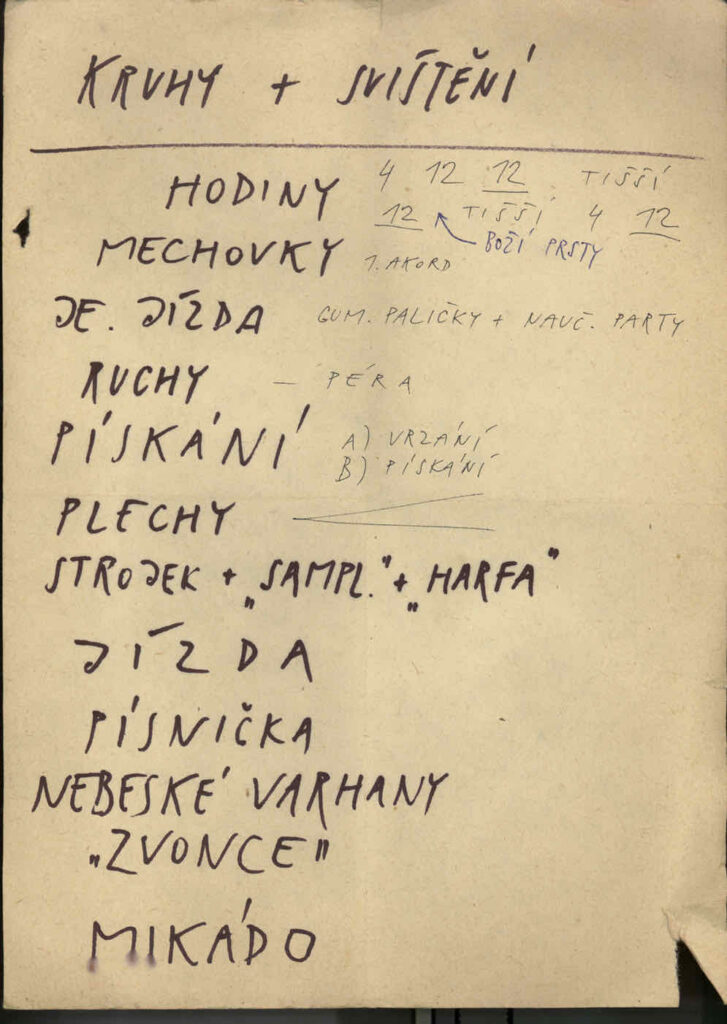 KRUHY + SVIŠTĚNÍ
HODINY 4 12 12 TIŠŠÍ
12 TIŠŠÍ 4 12
BOŽÍ PRSTY
MECHOVKY 1. AKORD
JE. JÍZDA GUM. PALIČKY + NAUČ. PARTY
RUCHY – PÉRA
PÍSKÁNÍ A) VRZÁNÍ
B) PÍSKÁNÍ
PLECHY
STROJEK + „SAMPL.“ + „HARFA“
JÍZDA
PÍSNIČKA
NEBESKÉ VARHANY
„ZVONCE“
MIKÁDO